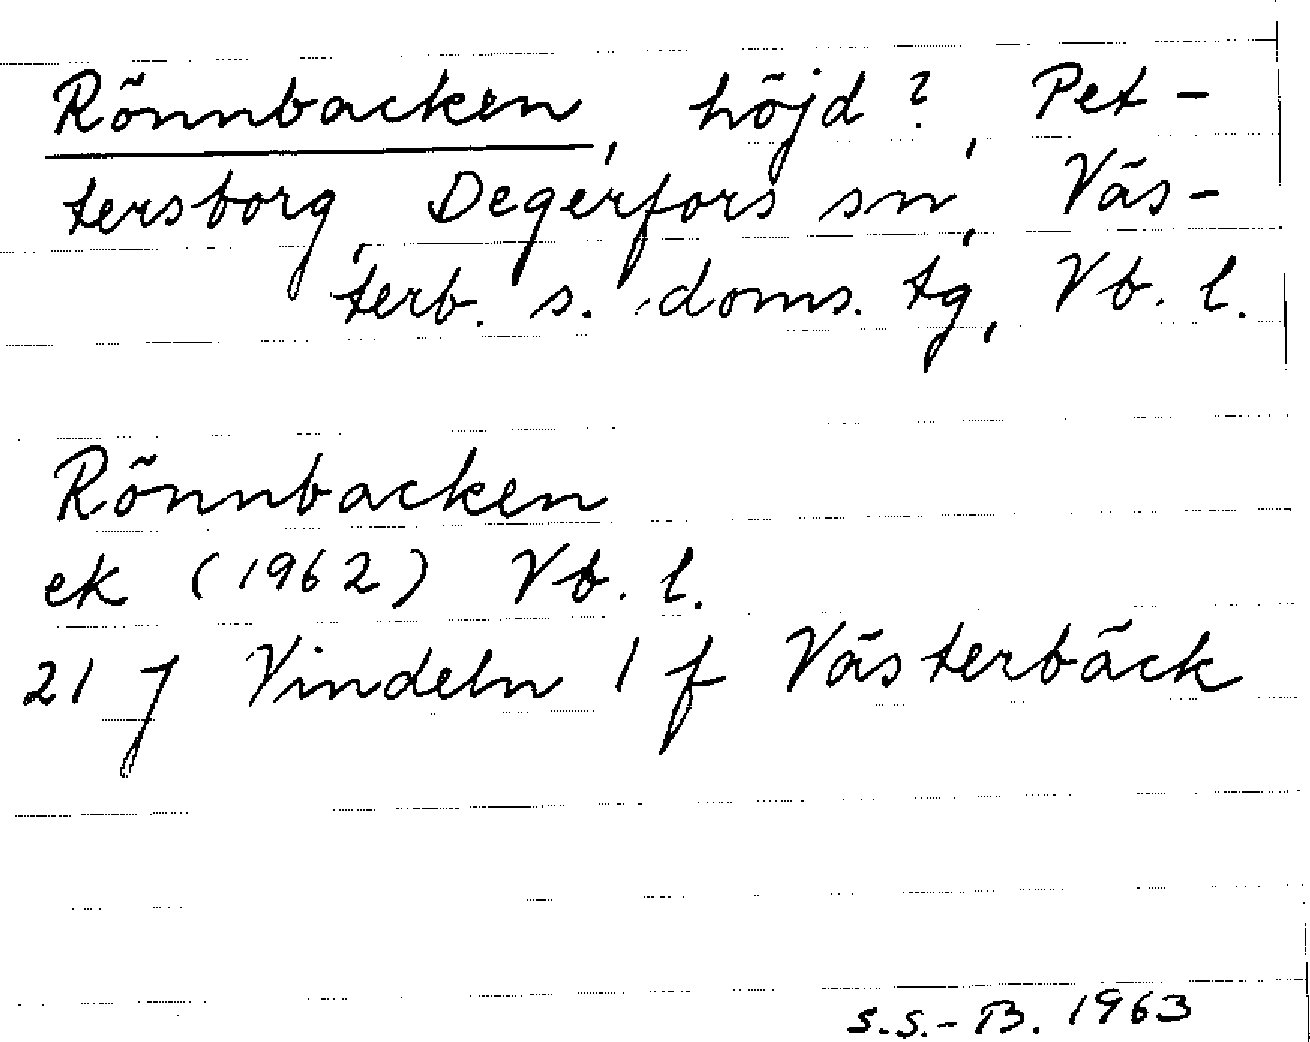 Rönnbacken, höjd?, Pet-
tersborg, Degerfors sn, Väs-
terb. s. doms. tg, Vb. l.
Rönnbacken
ek (1962) Vb. l.
21 J Vindeln 1 f Västerbäck
S.S.-B. 1963